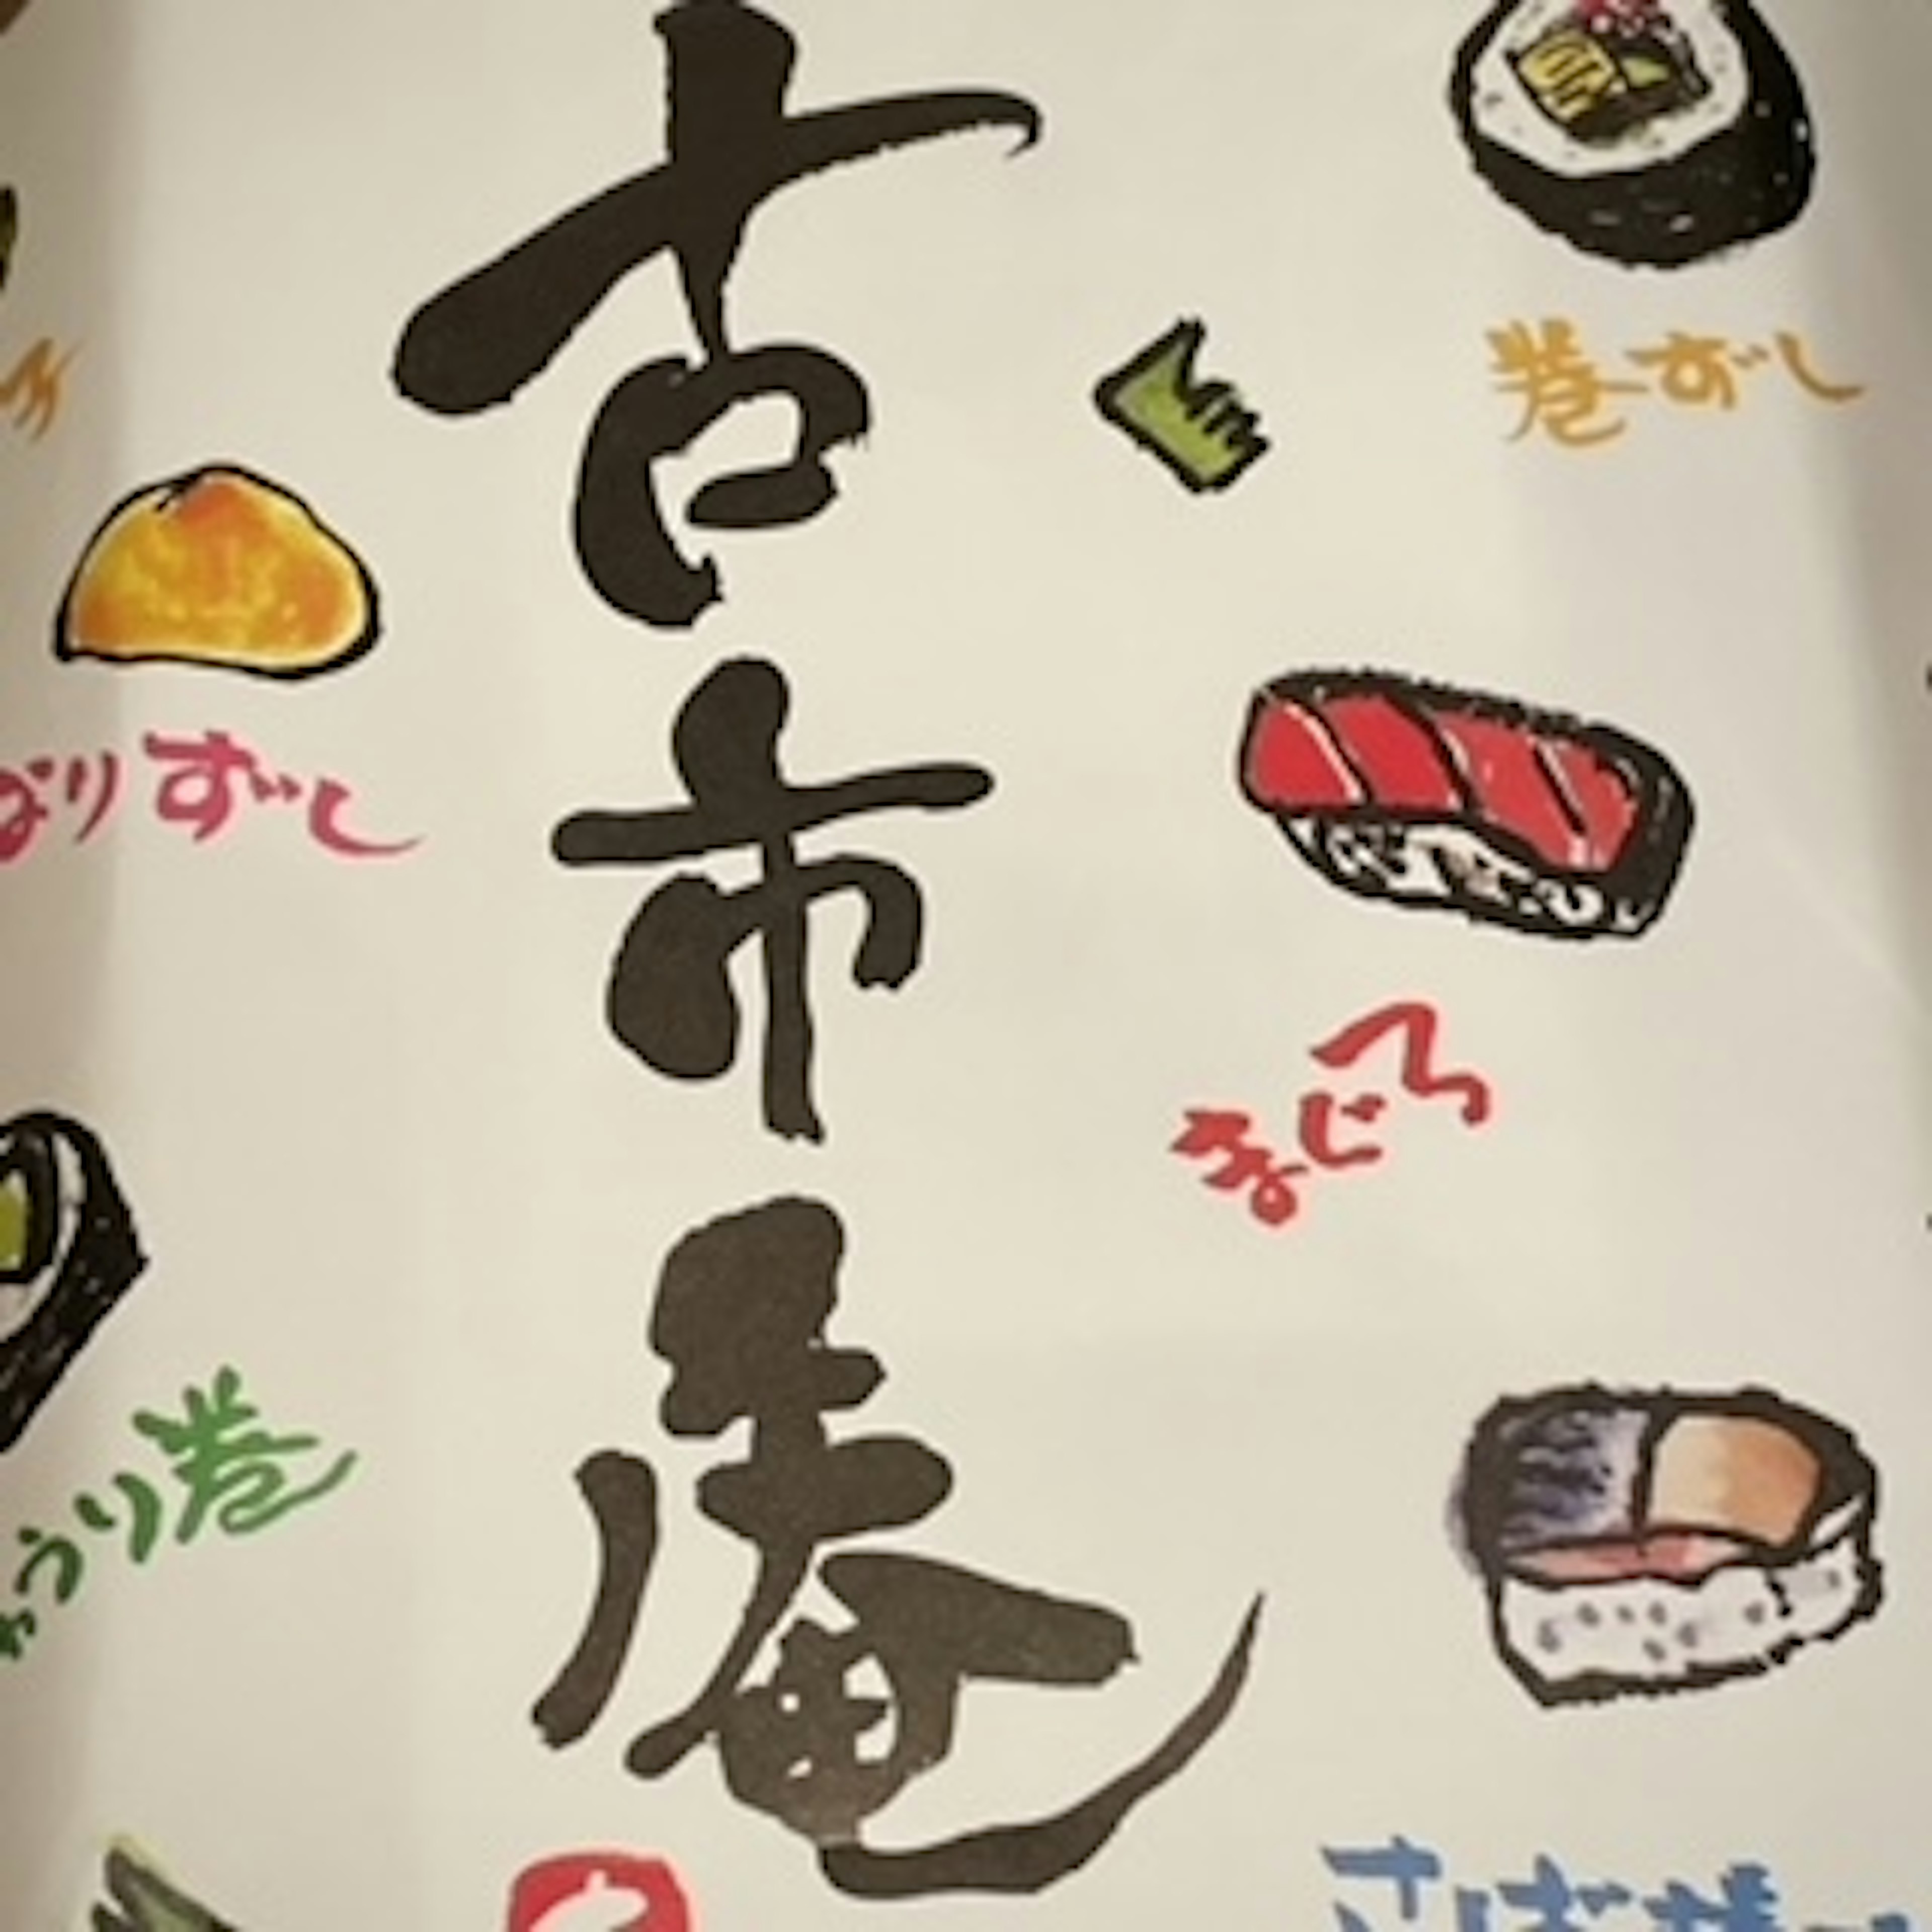 古市庵
巻ずし
なりずし
まぐろ
ゅうり巻
さば